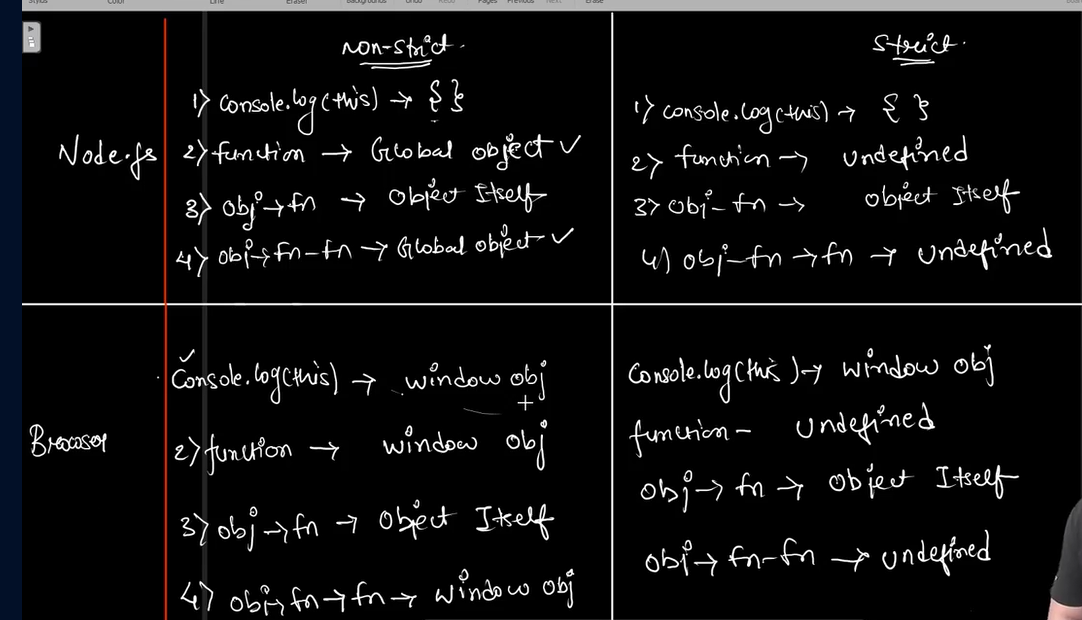 Stylus Color Line Eraser Backgrounds Undo Redo Pages Previous Next Erase
Non-strict.
Strict.
Node.js
1) console.log(this) → { }
2) function → Global object ✓
3) obj → fn → Object Itself
4) obj → fn - fn → Global object ✓
1) console.log(this) → { }
2) function → undefined
3) obj - fn → object Itself
4) obj - fn → fn → undefined
Browser
✓
Console.log(this) → window obj
2) function → window obj
3) obj → fn → Object Itself
4) obj → fn → fn → window obj
Console.log(this) → window obj
function - undefined
obj → fn → Object Itself
obj → fn - fn → undefined